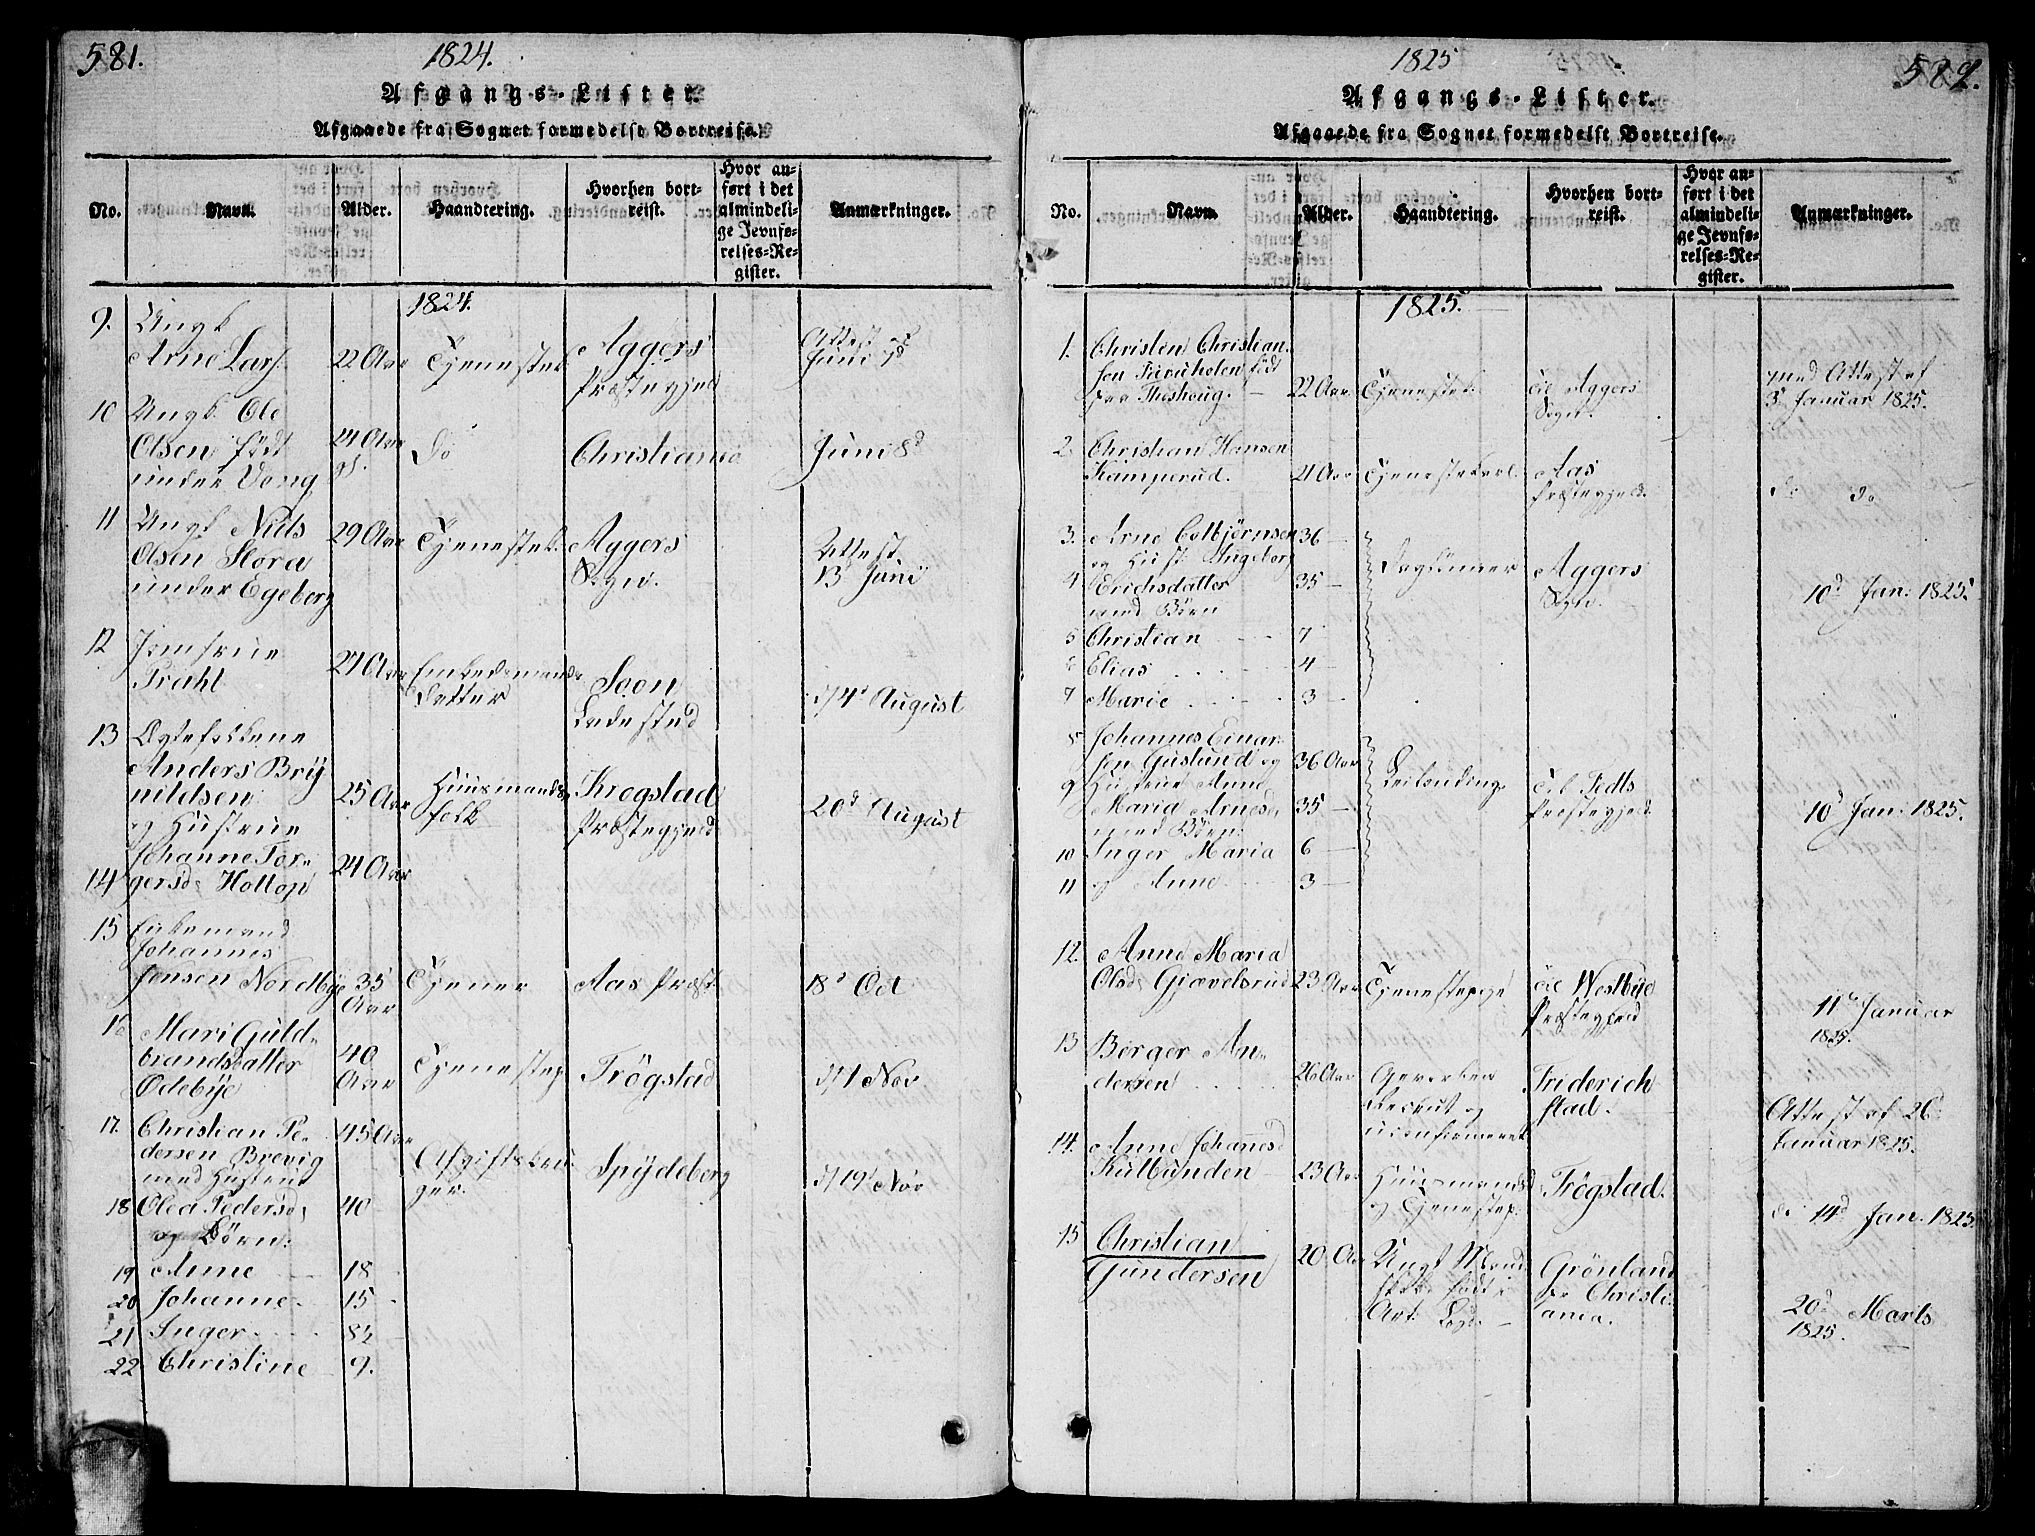 581.
1824.
Afgangs-Lister.
Afgaaede fra Sognet formedelst Bortreise.
No.
Navn.
Alder.
Haandtering.
Hvorhen bort-
reist.
Hvor an-
ført i det
almindeli-
ge Jevnfø-
relses-Re-
gister.
Anmærkninger.
1824.
9. Ungk
Arne Lars. 22 Aar Tjenestek Aggers
Præstegjeld
Attest
Juni 7d
10 Ungk. Ole
Olsen født
under Vong
24 Aar
gl.
do
Christiania
Juni 8d
11 Ungk Niels
Olsen Slora
under Egeberg
29 Aar
Tjenestek.
Aggers
Sogn.
Attest
13d Juni
12 Jomfrue
Praht
27 Aar
Embedsmands
Datter
Soon
Ladested
d/4d August
13 Ægtefolkene
Anders Brÿ
nildsen
og Hustrue
25 Aar
Huusmands
folk
Krogstad
Præstegjeld
20d August
14 Johanne Tor-
gersd. Holtop
24 Aar
15 Enkemand
Johannes
Jensen Nordbÿe
35
Aar
Tjener
Aas Præst
18d Oct
16 Mari Guld-
brandsdatter
Odebÿe
40
Aar
Tjenestep
Trögstad
d/1 Nov
17. Christian Pe-
dersen Brevig
med Hustrue
45 Aar
Spÿdeberg
d/19d Nov
18 Olea Pedersd.
og Börn:
40
19 Anne 18
20 Johanne. 15
21 Inger
22 Christine 9.
1825
582.
Afgangs-Lister.
Afgaaede fra Sognet formedelst Bortreise.
No.
Navn.
Alder.
Haandtering.
Hvorhen bort-
reist.
Hvor an-
ført i det
almindeli-
ge Jevnfø-
relses-Re-
gister.
Anmærkninger.
1825.
1. Christen Christian-
sen født
fra
22 Aar
Tjenestek.
til Aggers
Sogn.
med Attest af
3d Januar 1825.
2. Christian Hansen
Kamperud.
21 Aar
Tjenestekarl
Aas
Præstegjeld.
do do
3. Arne Colbjörnsen
og Hust. Ingeborg
36
4 Erichsdatter
med Börn
35
Aggers
Sogn.
10d Jan: 1825.
5 Christian 7
6 Elias 4
7 Marie 3
8 Johannes Einar-
sen Guslund og
36 Aar
Leilending
til
Præstegjeld.
10d Jan: 1825.
9 Hustrue Anne
Maria Arnesd.
med Börn.
35
10 Inger Maria 6
11 og Anne 3
12. Anne Maria
Olsd. Gjævelsrud
23 Aar
Tjenestepige
til Westbÿe
Præstegjeld
11te Januar
1825.
13 Borger An-
dersen
26 Aar
og
uconfirmeret
Friderich
stad.
Attest af 26d
Januar 1825.
14. Anne Johanesd
Kulbunden
23 Aar
Huusmandsd
og Tjenestep.
Trögstad.
do 14d Jan. 1825
15 Christian
Gundersen
20 Aar
Ungt Mand
født i
Grönland
pr Christi-
ania.
20d Marts
1825.